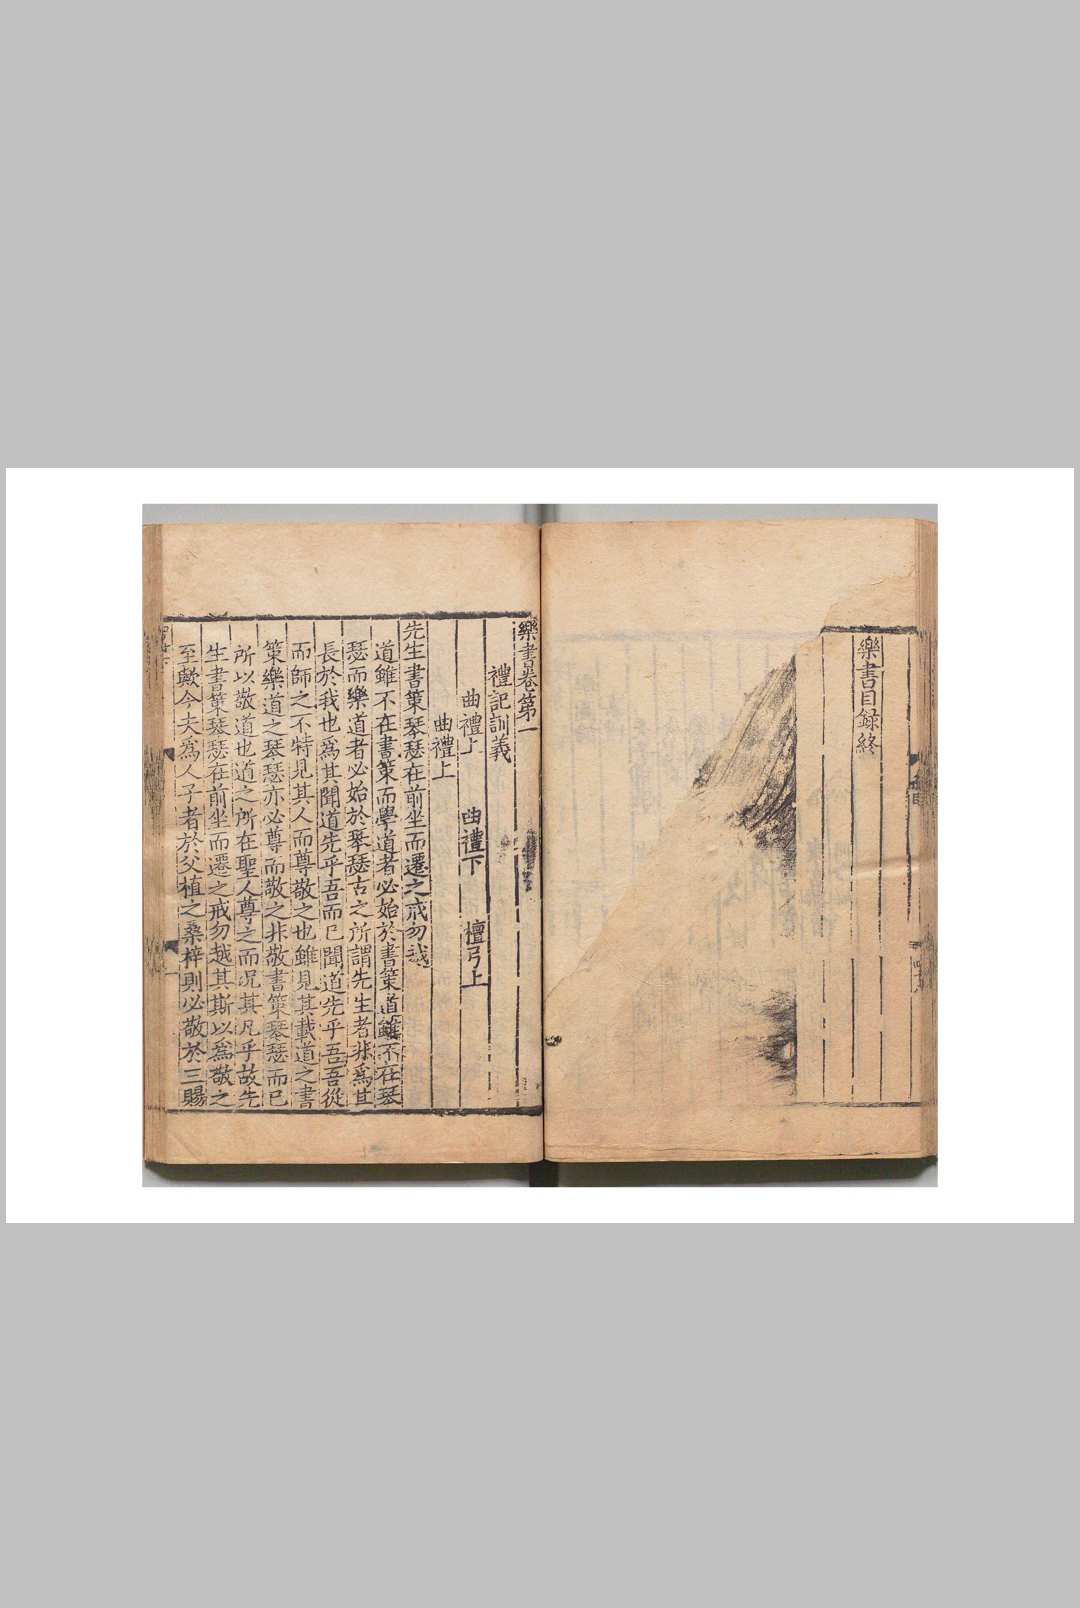 樂書目録終
樂書卷第一
禮記訓義
曲禮上　曲禮下　檀弓上
曲禮上
先生書策琴瑟在前坐而遷之戒勿越
道雖不在書策而學道者必始於書策道雖不在琴
瑟而樂道者必始於琴瑟古之所謂先生者非為其
長於我也為其聞道先乎吾而已聞道先乎吾吾從
而師之不特見其人而尊敬之也雖見其載道之書
策樂道之琴瑟亦必尊而敬之非敬書策琴瑟而已
所以敬道也道之所在聖人尊之而况其凡乎故先
生書策琴瑟在前坐而遷之戒勿越其斯以為敬之
至歟今夫為人子者於父植之桑梓則必敬於三賜